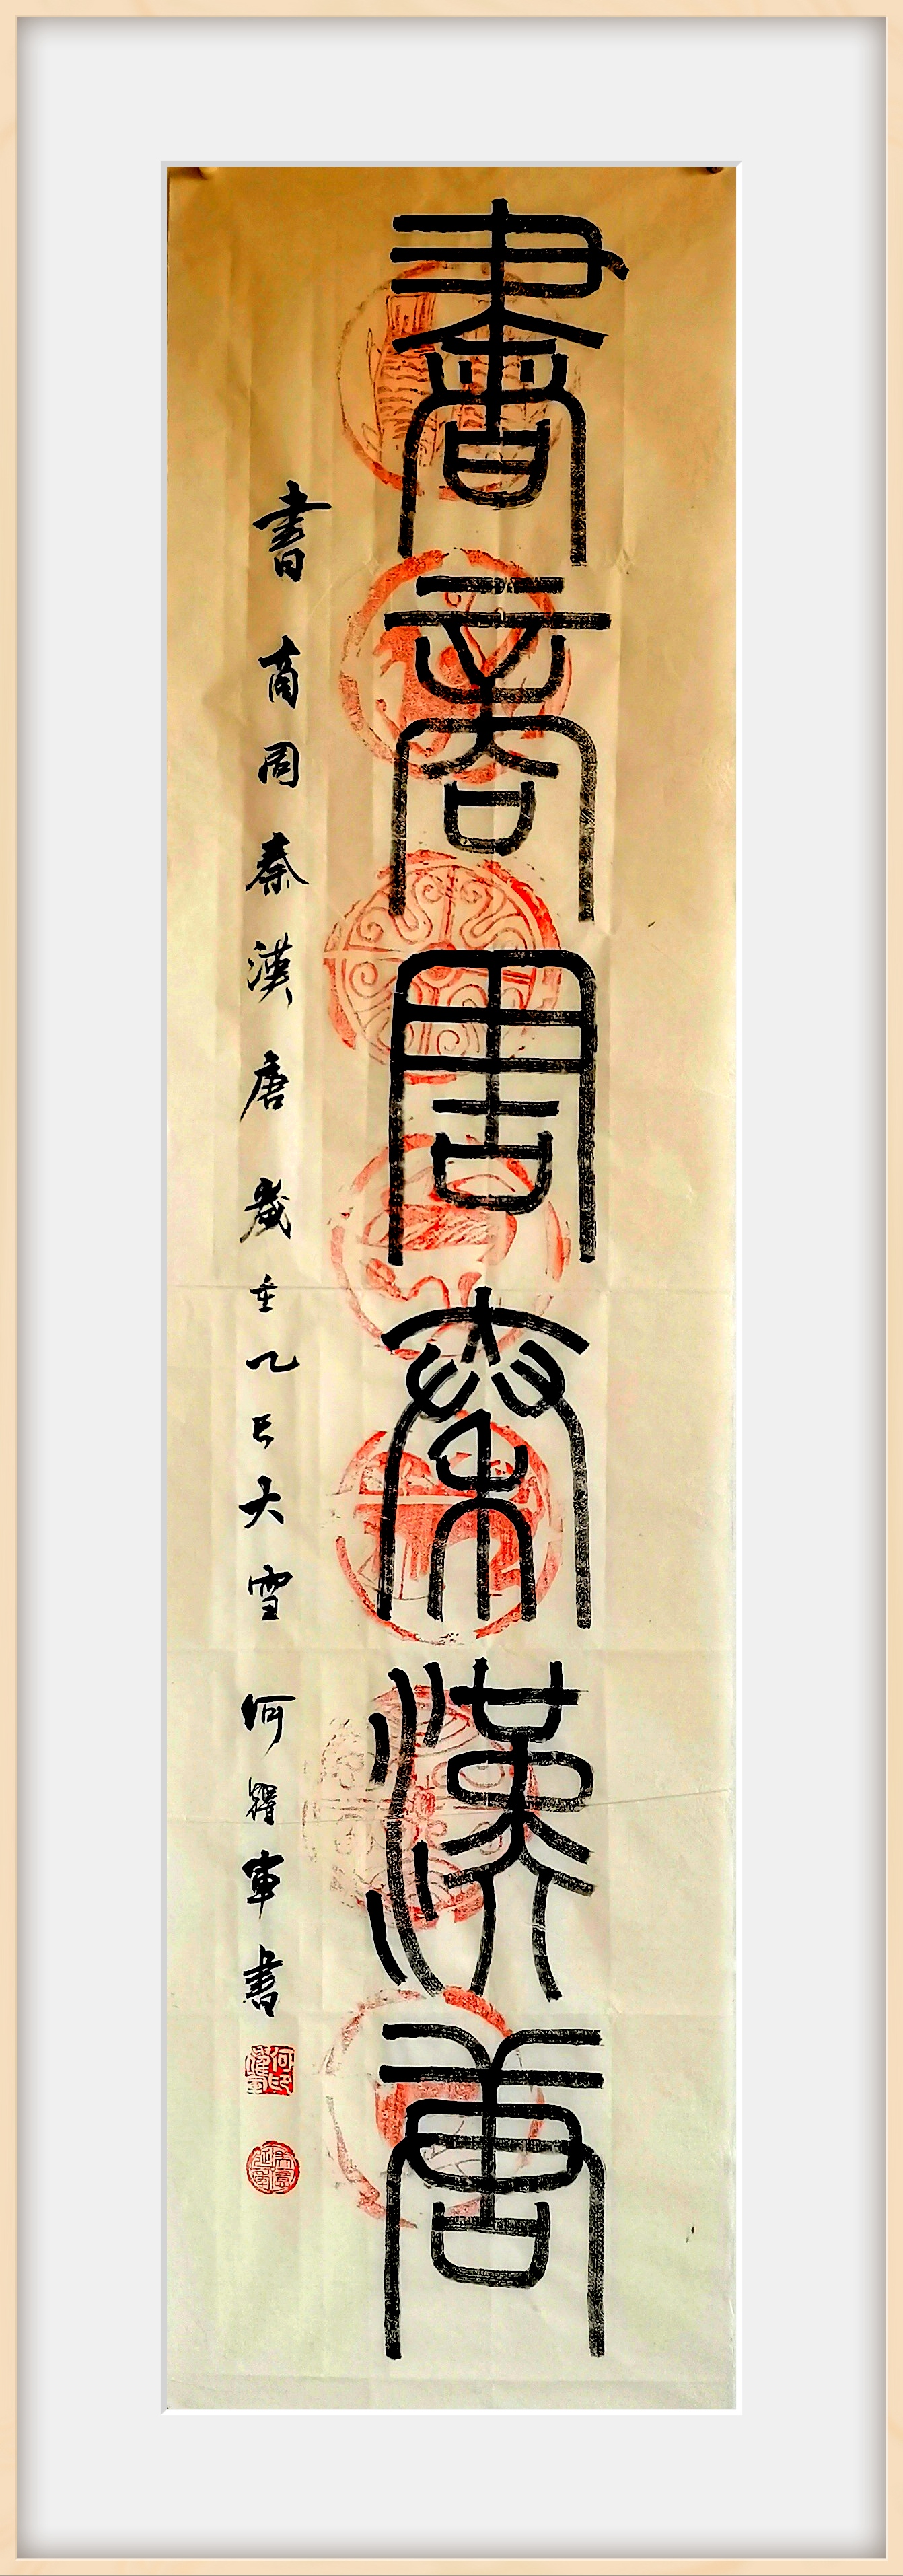 書商周秦漢唐
書商周秦漢唐 歲在乙巳大雪 何耀軍書